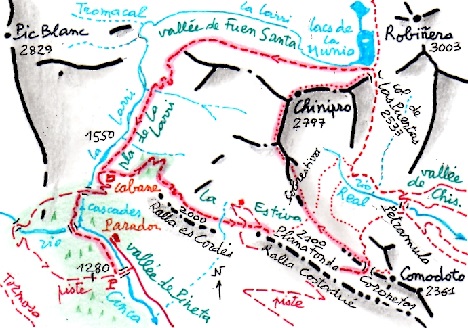 Tromacal
la Larri
Pic Blanc
2829
vallée de Fuen Santa
Lacs de
Munia
Robiñera
3003
la Larri
Pla de La
Larri
1550
Chinipro
2797
Col de
las Puertas
2533
Cabane
cascades
Parador
rio
1280
piste
Cinca
vallée de Pineta
2000
Ralla es Cordes
La
Estiva
N
2300
Planafonda
piste
Real
rio
Petramula
vallée
de Chis.
Comodoto
2361